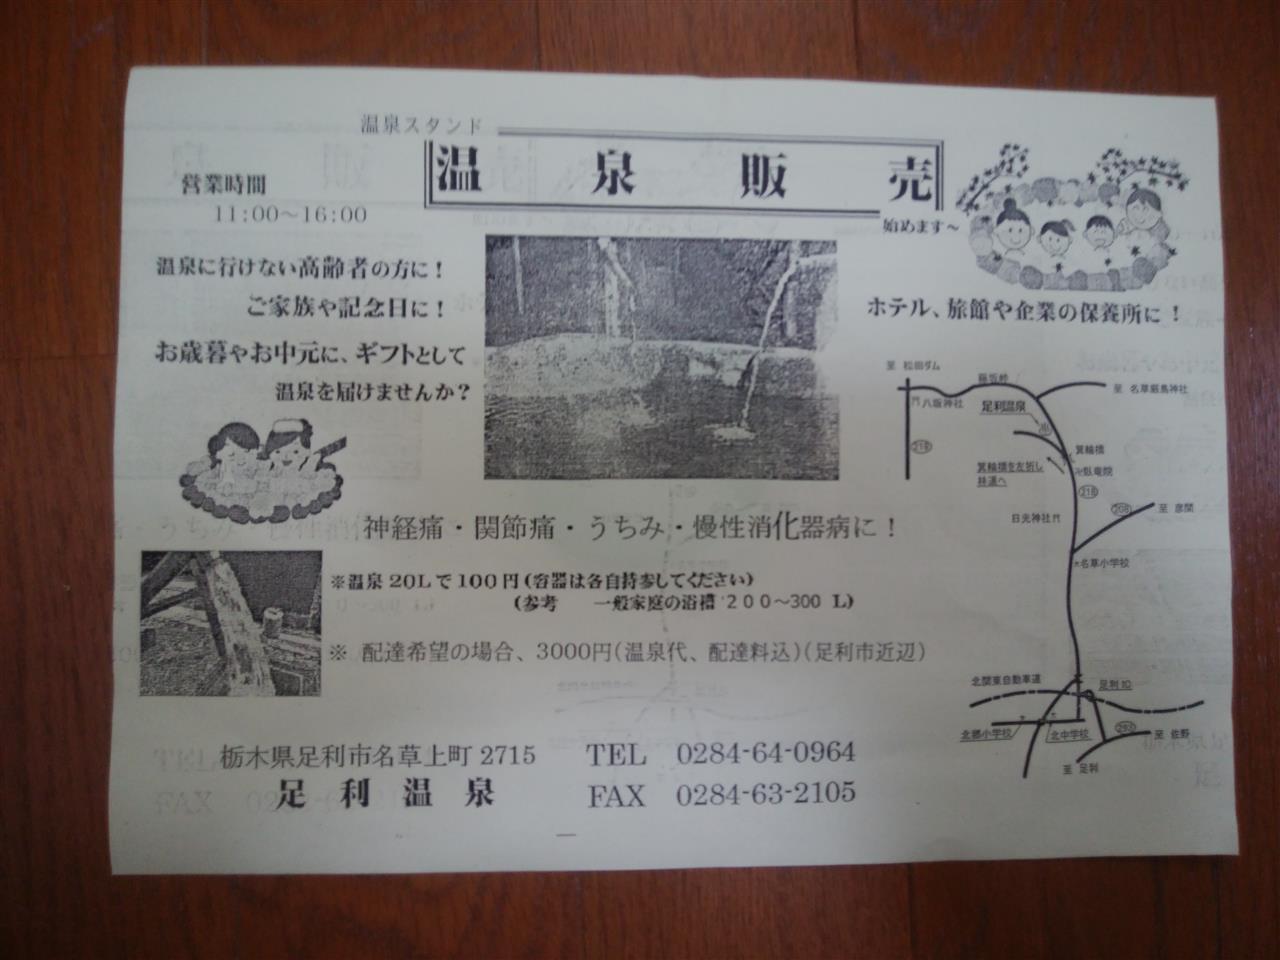 温泉スタンド
温泉販売
始めます～
営業時間
11:00～16:00
温泉に行けない高齢者の方に！
ご家族や記念日に！
お歳暮やお中元に、ギフトとして
温泉を届けませんか？
ホテル、旅館や企業の保養所に！
至 松田ダム
藤坂峠
至 名草厳島神社
八坂神社
足利温泉
218
箕輪橋
箕輪橋を左折し
林道へ
臥竜院
218
日光神社
208
至 彦間
名草小学校
北関東自動車道
足利IC
北郷小学校
北中学校
293
至 佐野
至 足利
神経痛・関節痛・うちみ・慢性消化器病に！
※温泉20Lで100円(容器は各自持参してください)
(参考 一般家庭の浴槽 200～300 L)
※ 配達希望の場合、3000円(温泉代、配達料込)(足利市近辺)
栃木県足利市名草上町 2715
足利温泉
TEL 0284-64-0964
FAX 0284-63-2105